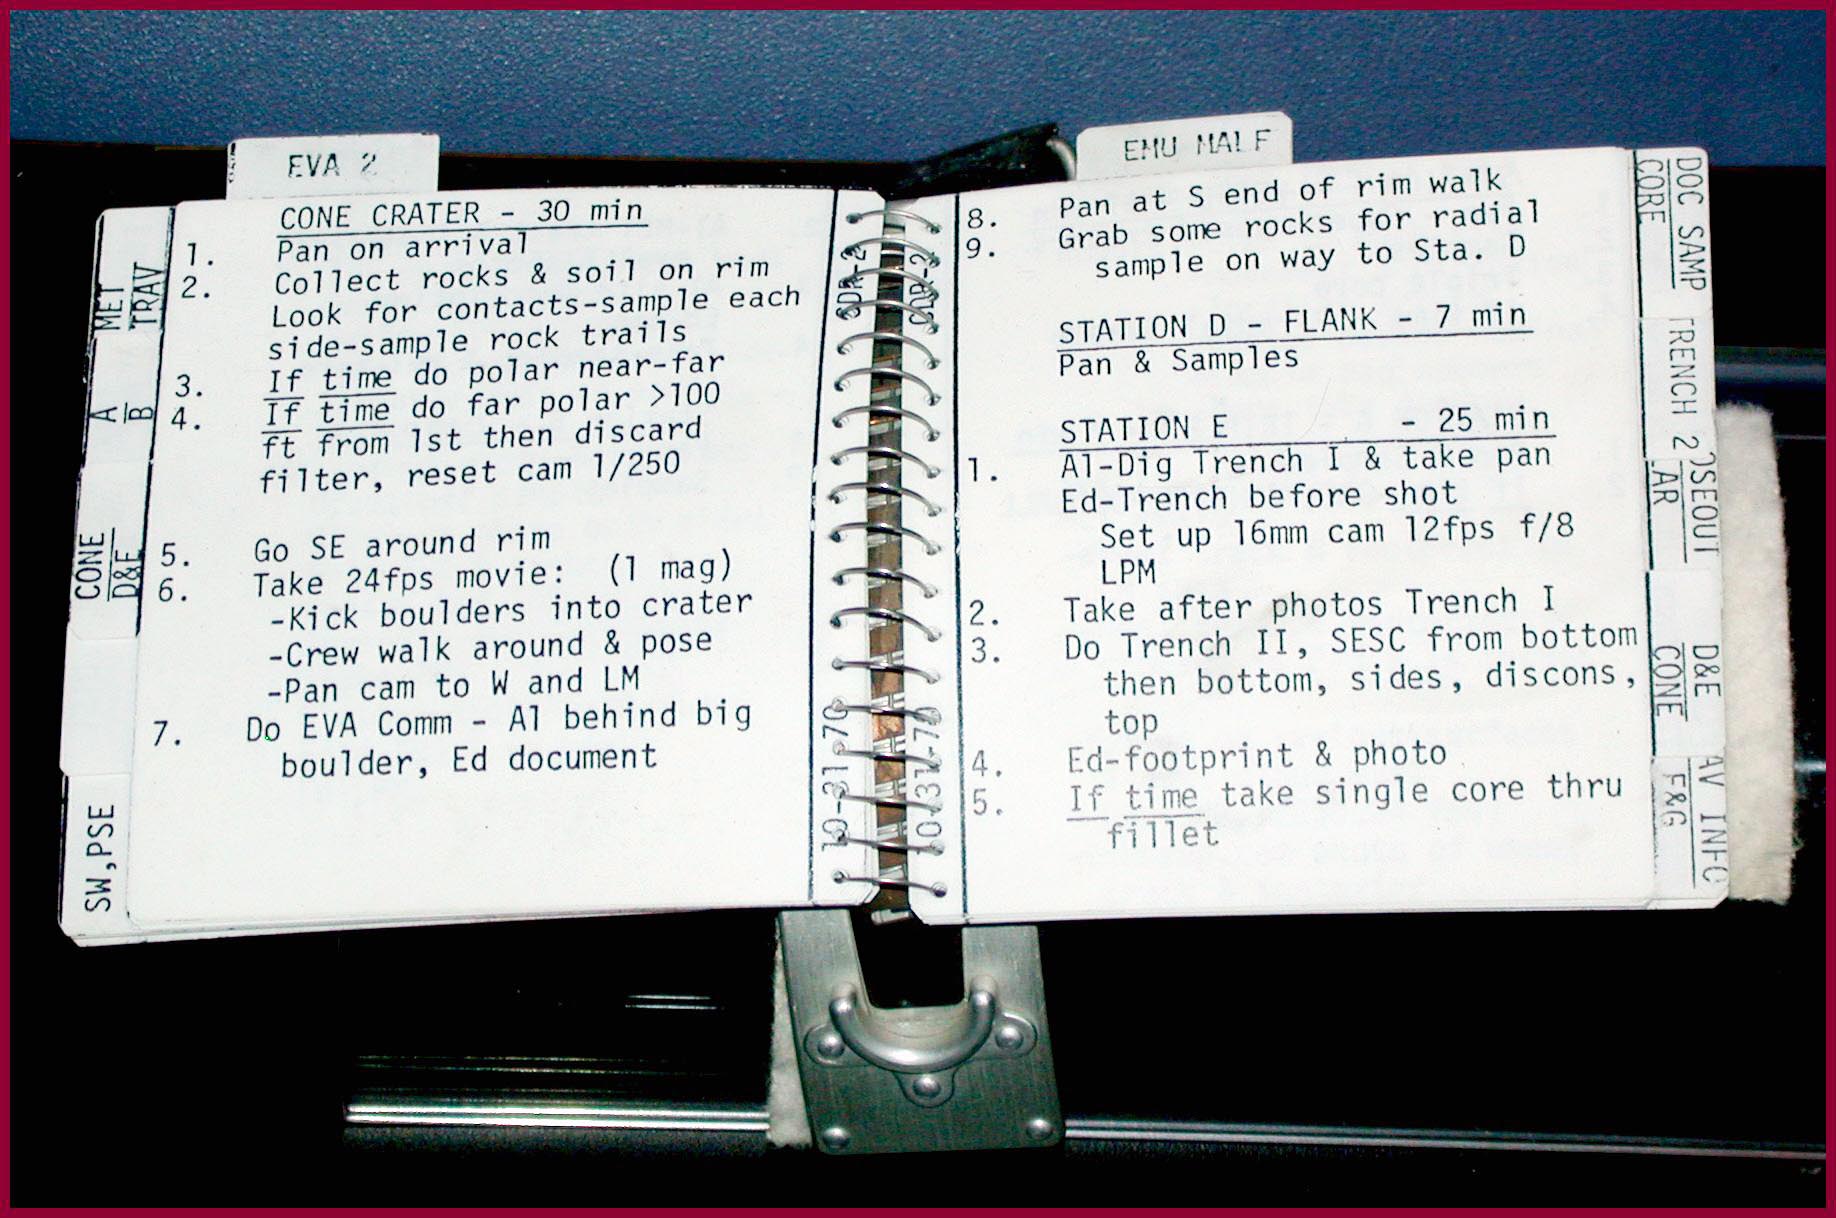 EVA 2
CONE CRATER - 30 min
1. Pan on arrival
2. Collect rocks & soil on rim
Look for contacts-sample each
side-sample rock trails
3. If time do polar near-far
4. If time do far polar >100
ft from 1st then discard
filter, reset cam 1/250
5. Go SE around rim
6. Take 24fps movie: (1 mag)
-Kick boulders into crater
-Crew walk around & pose
-Pan cam to W and LM
7. Do EVA Comm - Al behind big
boulder, Ed document
MET
TRAV
A
B
CONE
D&E
SW,PSE
10-31-70
EMU MALF
8. Pan at S end of rim walk
9. Grab some rocks for radial
sample on way to Sta. D
STATION D - FLANK - 7 min
Pan & Samples
STATION E - 25 min
1. Al-Dig Trench I & take pan
Ed-Trench before shot
Set up 16mm cam 12fps f/8
LPM
2. Take after photos Trench I
3. Do Trench II, SESC from bottom
then bottom, sides, discons,
top
4. Ed-footprint & photo
5. If time take single core thru
fillet
10-31-70
DOC SAMP
CORE
TRENCH 2
D&E
CONE
INFO
F&G